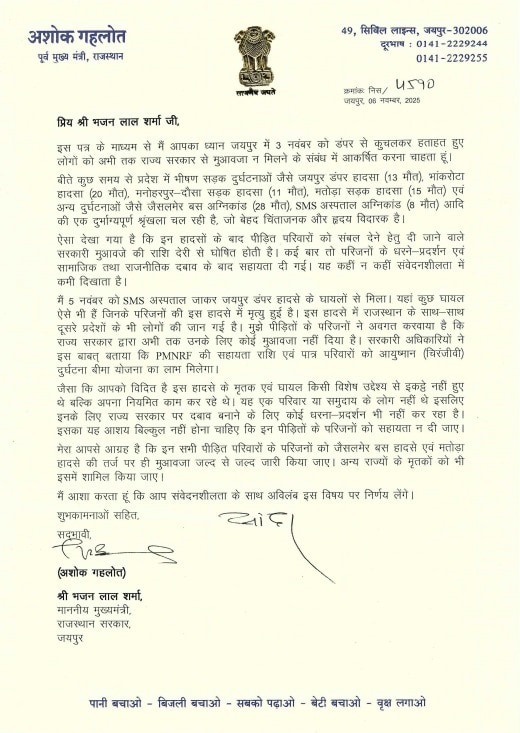 अशोक गहलोत
पूर्व मुख्य मंत्री, राजस्थान
सत्यमेव जयते
49, सिविल लाइन्स, जयपुर-302006
दूरभाष : 0141-2229244
0141-2229255
क्रमांक: निस/ 4590
जयपुर, 06 नवम्बर, 2025
प्रिय श्री भजन लाल शर्मा जी,
इस पत्र के माध्यम से मैं आपका ध्यान जयपुर में 3 नवंबर को डंपर से कुचलकर हताहत हुए
लोगों को अभी तक राज्य सरकार से मुआवजा न मिलने के संबंध में आकर्षित करना चाहता हूं।
बीते कुछ समय से प्रदेश में भीषण सड़क दुर्घटनाओं जैसे जयपुर डंपर हादसा (13 मौत), भांकरोटा
हादसा (20 मौत), मनोहरपुर-दौसा सड़क हादसा (11 मौत), मतोड़ा सड़क हादसा (15 मौत) एवं
अन्य दुर्घटनाओं जैसे जैसलमेर बस अग्निकांड (28 मौत), SMS अस्पताल अग्निकांड (8 मौत) आदि
की एक दुर्भाग्यपूर्ण श्रृंखला चल रही है, जो बेहद चिंताजनक और हृदय विदारक है।
ऐसा देखा गया है कि इन हादसों के बाद पीड़ित परिवारों को संबल देने हेतु दी जाने वाले
सरकारी मुआवजे की राशि देरी से घोषित होती है। कई बार तो परिजनों के धरने-प्रदर्शन एवं
सामाजिक तथा राजनीतिक दबाव के बाद सहायता दी गई। यह कहीं न कहीं संवेदनशीलता में
कमी दिखाता है।
मैं 5 नवंबर को SMS अस्पताल जाकर जयपुर डंपर हादसे के घायलों से मिला। यहां कुछ घायल
ऐसे भी हैं जिनके परिजनों की इस हादसे में मृत्यु हुई है। इस हादसे में राजस्थान के साथ-साथ
दूसरे प्रदेशों के भी लोगों की जान गई है। मुझे पीड़ितों के परिजनों ने अवगत करवाया है कि
राज्य सरकार द्वारा अभी तक उनके लिए कोई मुआवजा नहीं दिया है। सरकारी अधिकारियों ने
इस बाबत् बताया कि PMNRF की सहायता राशि एवं पात्र परिवारों को आयुष्मान (चिरंजीवी)
दुर्घटना बीमा योजना का लाभ मिलेगा।
जैसा कि आपको विदित है इस हादसे के मृतक एवं घायल किसी विशेष उद्देश्य से इकट्ठे नहीं हुए
थे बल्कि अपना नियमित काम कर रहे थे। यह एक परिवार या समुदाय के लोग नहीं थे इसलिए
इनके लिए राज्य सरकार पर दबाव बनाने के लिए कोई धरना-प्रदर्शन भी नहीं कर रहा है।
इसका यह आशय बिल्कुल नहीं होना चाहिए कि इन पीड़ितों के परिजनों को सहायता न दी जाए।
मेरा आपसे आग्रह है कि इन सभी पीड़ित परिवारों के परिजनों को जैसलमेर बस हादसे एवं मतोड़ा
हादसे की तर्ज पर ही मुआवजा जल्द से जल्द जारी किया जाए। अन्य राज्यों के मृतकों को भी
इसमें शामिल किया जाए।
मैं आशा करता हूं कि आप संवेदनशीलता के साथ अविलंब इस विषय पर निर्णय लेंगे।
शुभकामनाओं सहित,
सद्भावी,
(अशोक गहलोत)
श्री भजन लाल शर्मा,
माननीय मुख्यमंत्री,
राजस्थान सरकार,
जयपुर
पानी बचाओ - बिजली बचाओ - सबको पढ़ाओ - बेटी बचाओ - वृक्ष लगाओ